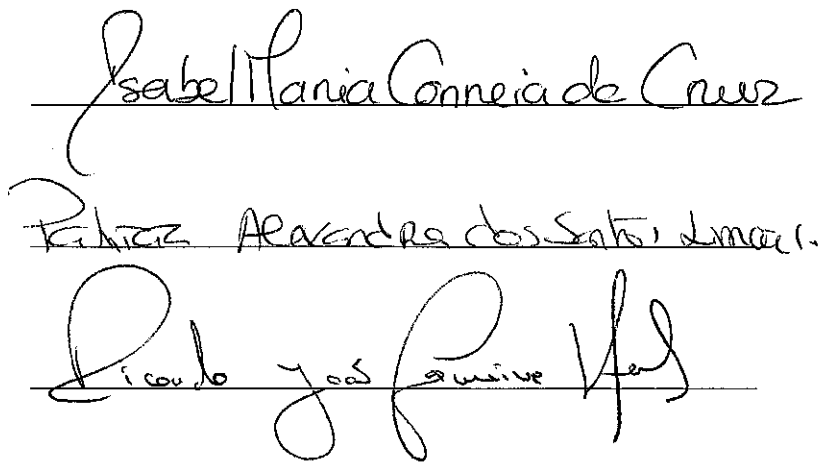 Isabel Maria Correia da Cruz
Patrícia Alexandra dos Santos
Ricardo João